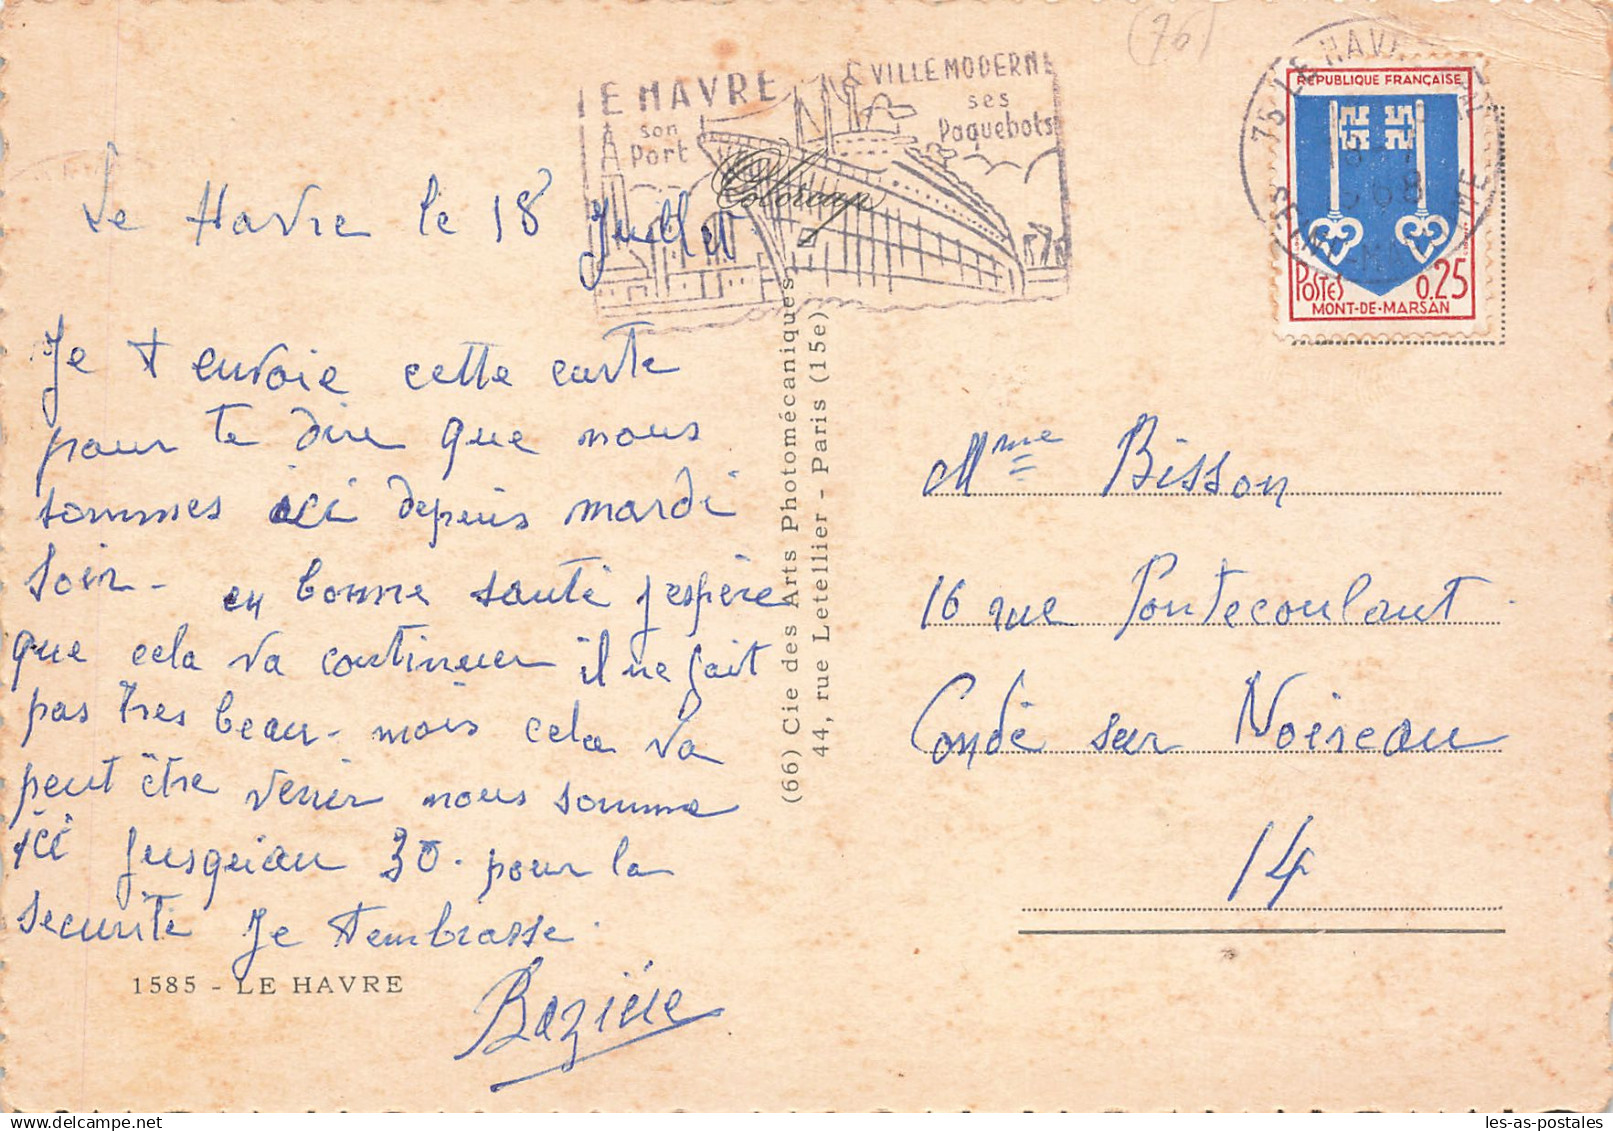 (76)
LE HAVRE
son
Port
VILLE MODERNE
ses
Paquebots
Colorcap
76 LE HAVRE
SEINE MME
1968
REPUBLIQUE FRANÇAISE
POSTES 0.25
MONT-DE-MARSAN
Le Havre le 18 Juillet
Je t envoie cette carte
pour te dire que nous
sommes ici depuis mardi
soir - en bonne santé j'espère
que cela va continuer il ne fait
pas tres beau - mais cela va
peut être venir nous somme
ici jusqu'au 30 . pour la
securité Je t'embrasse .
1585 - LE HAVRE
(66) Cie des Arts Photomécaniques
44, rue Letellier - Paris (15e)
Mme Bisson
16 rue Pontecoulant
Condé sur Noireau
14
les-as-postales